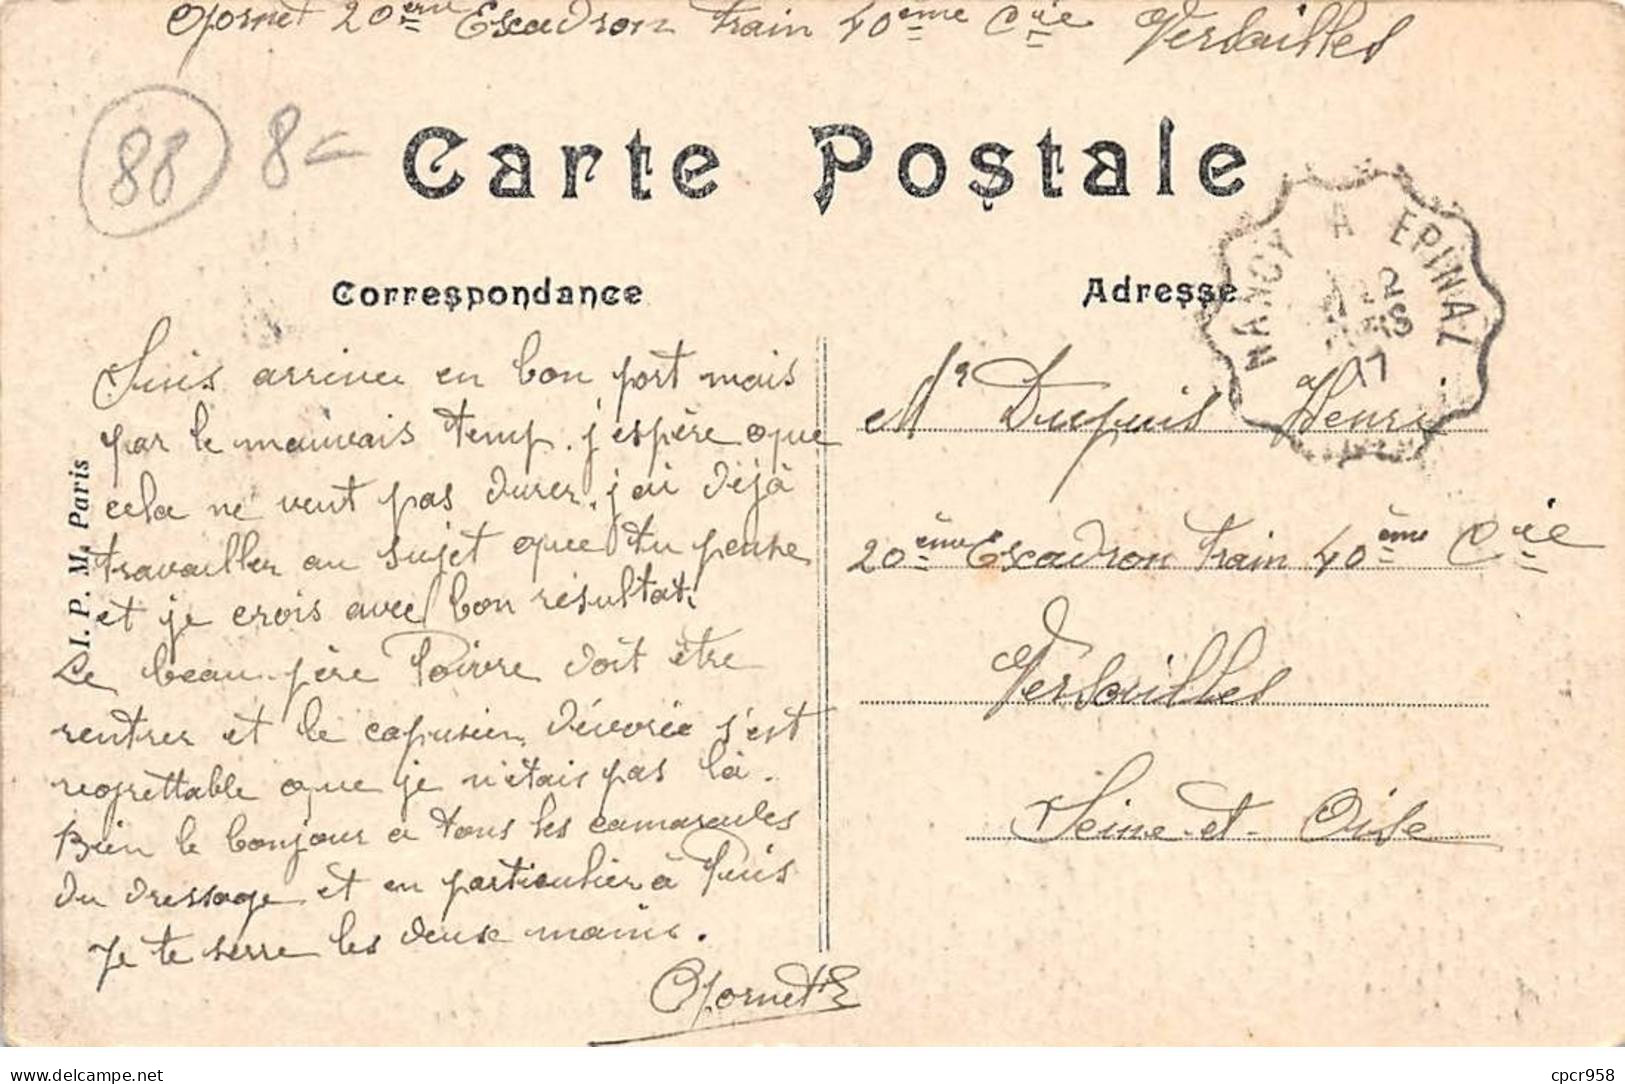 Gornet 20ème Escadron train 40ème Cie Versailles
88 8=
Carte Postale
NANCY A EPINAL
Correspondance
Adresse
I. P. M. Paris
Suis arrivé en bon port mais
par le mauvais temp. j'espère que
cela ne veut pas durer. j'ai déjà
travailler au sujet que tu pense
et je crois avec bon résultat.
Le beau-père Poivre doit être
rentrer et le capusien dévorée s'est
regrettable que je n'étais pas là.
Bien le bonjour a tous les camarades
du dressage et en particulier à Puis
Je te serre les deux mains.
Gornet E
Mr Dupuis Henri
20ème Escadron train 40ème Cie
Versailles
Seine-et-Oise
cpcr958